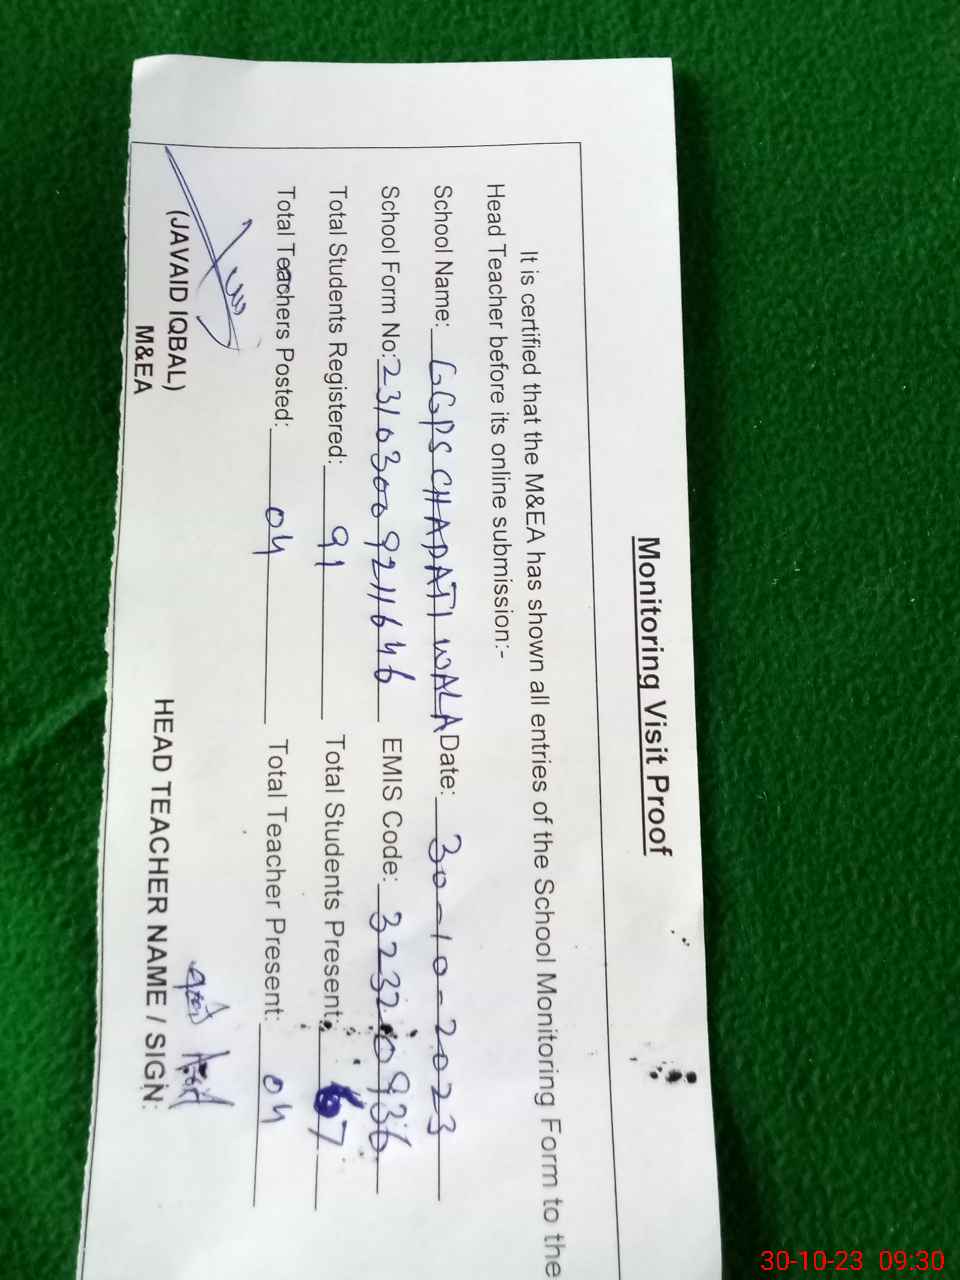 Monitoring Visit Proof
It is certified that the M&EA has shown all entries of the School Monitoring Form to the
Head Teacher before its online submission:-
School Name: GGPS CHAPATI WALA Date: 30-10-2023
School Form No: 23103009211646 EMIS Code: 32320936
Total Students Registered: 91 Total Students Present: 67
Total Teachers Posted: 04 Total Teacher Present: 04
(JAVAID IQBAL)
M&EA
HEAD TEACHER NAME / SIGN:
30-10-23 09:30